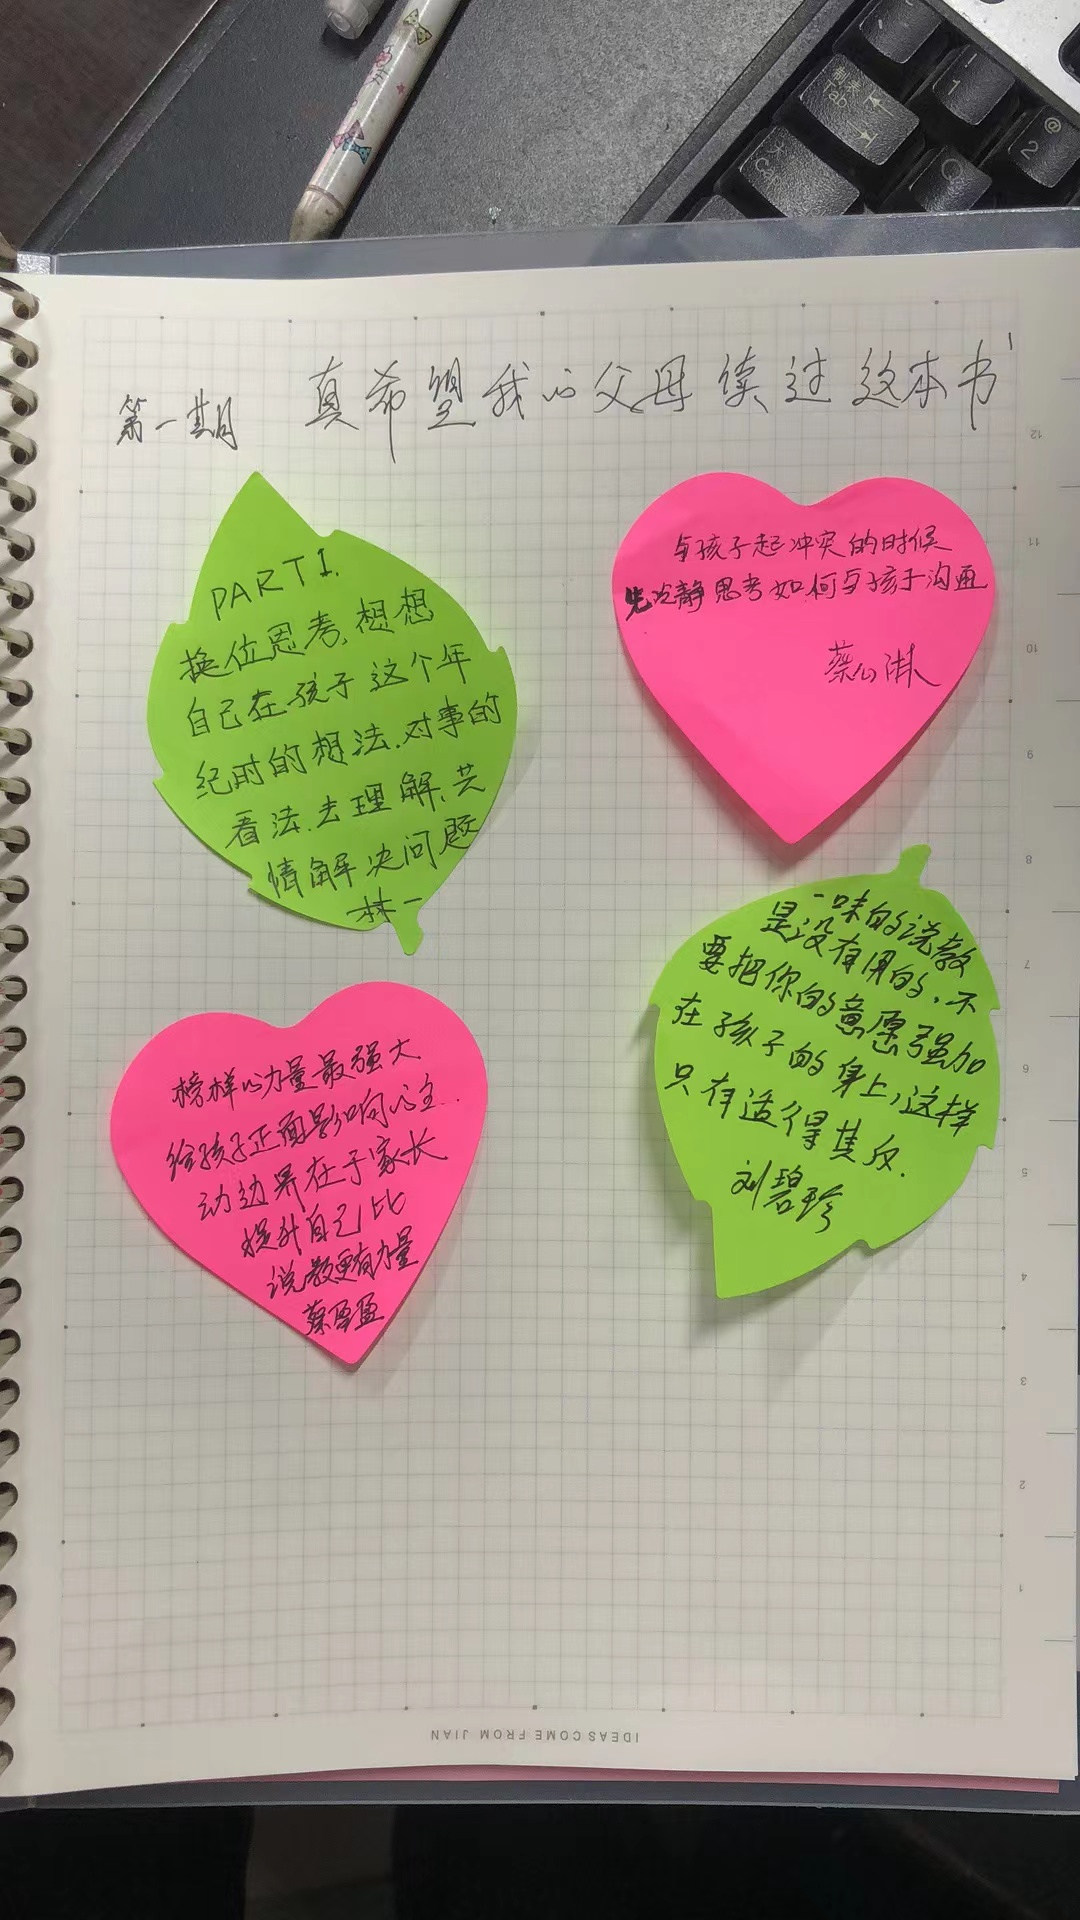 第一期 真希望我的父母读过这本书
PART1.
换位思考,想想
自己在孩子这个年
纪时的想法.对事的
看法.去理解.共
情解决问题
林一
与孩子起冲突的时候
先冷静思考如何与孩子沟通
蔡心淋
榜样的力量最强大
给孩子正面影响的主
动边界在于家长
提升自己比
说教更有力量
蔡盈盈
一味的说教
是没有用的,不
要把你的意愿强加
在孩子的身上,这样
只有适得其反.
刘碧珍
制表
Tab
1
@
2
Q
大
Caps
12
11
10
9
8
7
6
5
4
3
2
1
IDEAS COME FROM JIAN